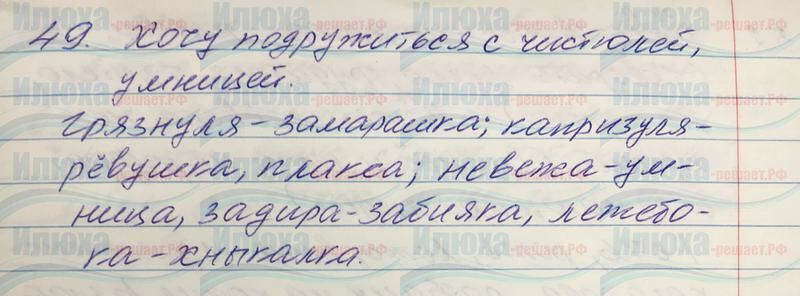 49. Хочу подружиться с чистюлей,
умницей.
Грязнуля - замарашка; капризуля -
рёвушка, плакса; невежа - ум-
ница, задира - забияка, лежебо-
ка - хныкалка.